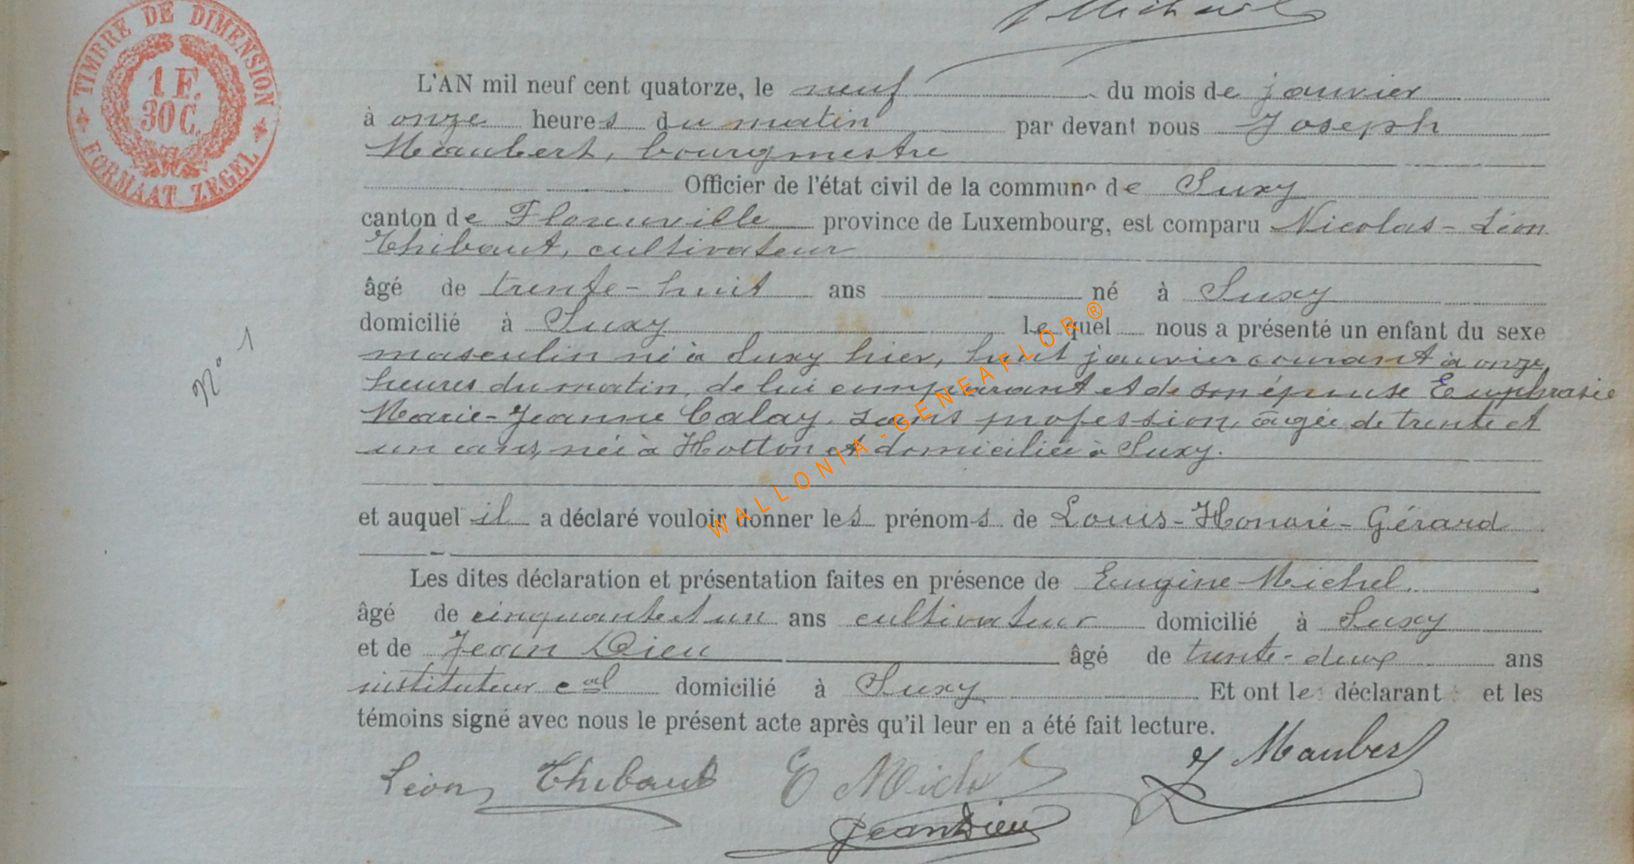 TIMBRE DE DIMENSION
1 F.
30 C.
FORMAAT ZEGEL
L'AN mil neuf cent quatorze, le neuf du mois de janvier
à onze heures du matin par devant nous Joseph
Maubert, bourgmestre
Officier de l'état civil de la commune de Suxy
canton de Florenville province de Luxembourg, est comparu Nicolas-Léon
Thibaut, cultivateur
âgé de trente-huit ans né à Suxy
domicilié à Suxy lequel nous a présenté un enfant du sexe
N° 1
masculin né à Suxy hier, huit janvier courant à onze
heures du matin, de lui comparant et de son épouse Euphrasie
Marie-Jeanne Calay, sans profession, âgée de trente et
un ans, née à Hotton et domiciliée à Suxy.
et auquel il a déclaré vouloir donner les prénoms de Louis-Honoré-Gérard
Les dites déclaration et présentation faites en présence de Eugène Michel,
âgé de cinquante et un ans cultivateur domicilié à Suxy
et de Jean Dieu âgé de trente-deux ans
instituteur cal domicilié à Suxy Et ont le déclarant et les
témoins signé avec nous le présent acte après qu'il leur en a été fait lecture.
Léon Thibaut E Michel J Maubert
Jean Dieu
WALLONIA-GENEAFLOR®